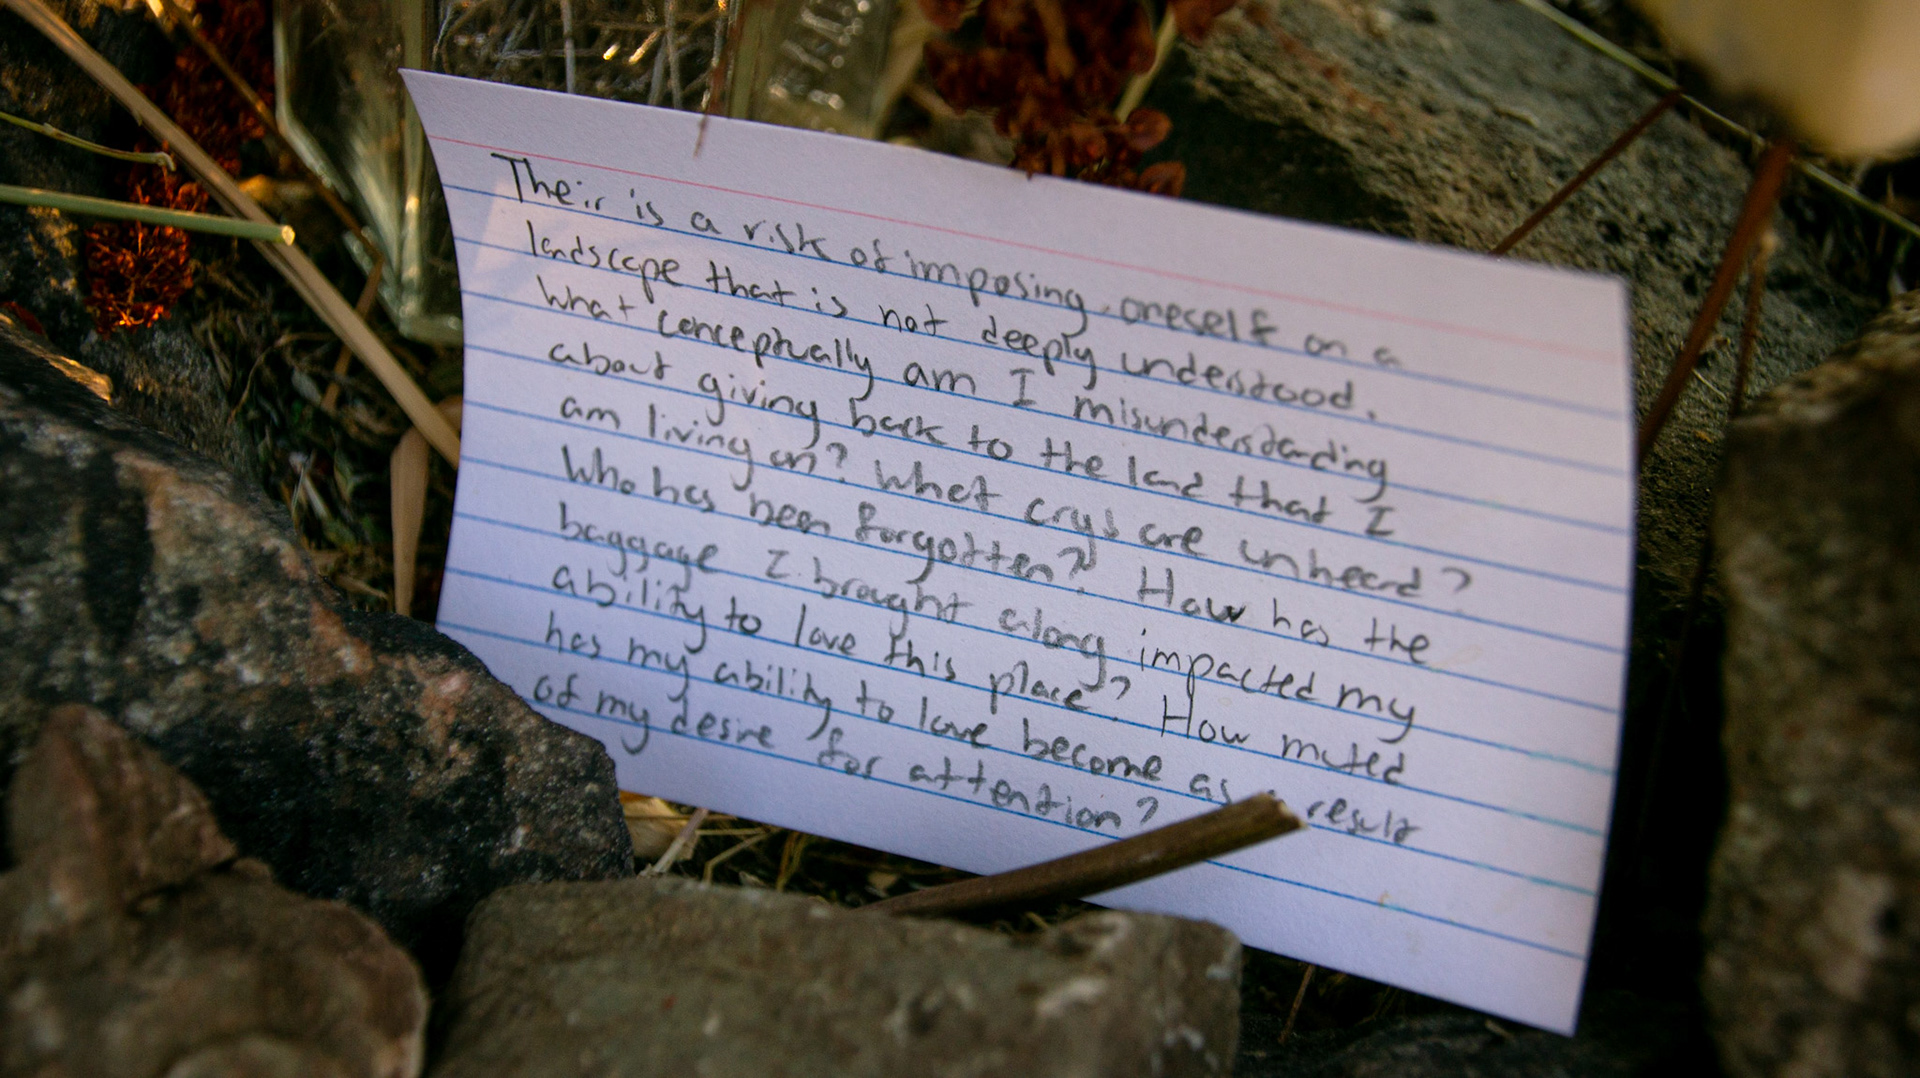 Their is a risk of imposing oneself on a
landscape that is not deeply understood.
What conceptually am I misunderstanding
about giving back to the land that I
am living on? What crys are unheard?
Who has been forgotten? How has the
baggage I brought along impacted my
ability to love this place? How muted
has my ability to love become as result
of my desire for attention?